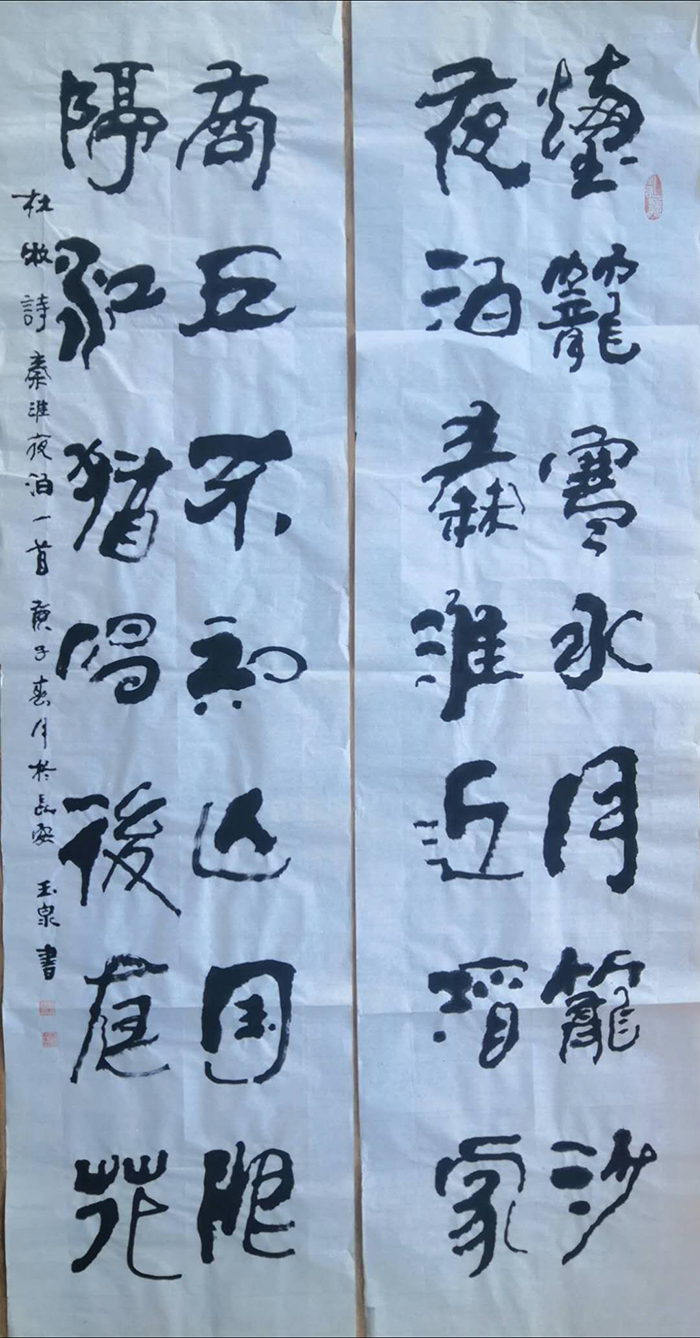 煙籠寒水月籠沙
夜泊秦淮近酒家
商女不知亡国恨
隔江猶唱後庭花
杜牧詩秦淮夜泊一首庚子春月於長安 玉泉書